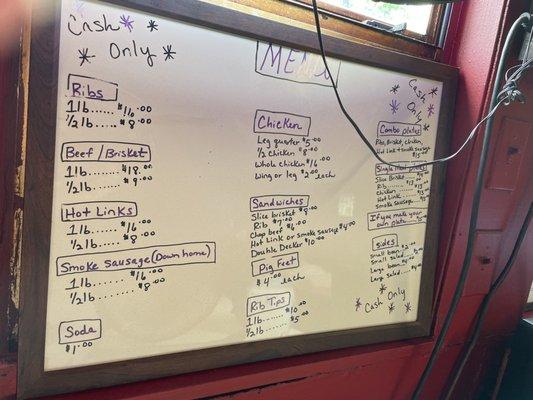 Cash
Only
MENU
Ribs
1lb..... $16.00
1/2lb..... $8.00
Beef / Brisket
1lb....... $18.00
1/2lb...... $9.00
Hot Links
1lb....... $16.00
1/2lb....... $8.00
Smoke Sausage (Down home)
1lb......... $16.00
1/2lb......... $8.00
Soda
$1.00
Chicken
Leg quarter $5.00
1/2 chicken $8.00
Whole chicken $16.00
Wing or leg $2.00 each
Sandwiches
Slice brisket $8.00
Rib $7.00
Chop beef $6.00
Hot Link or smoke sausage $7.00
Double Decker $10.00
Pig Feet
$4.00 each
Rib Tips
1lb....... $10.00
1/2lb....... $5.00
Cash
Only
Combo plates
Rib, Brisket, chicken,
Hot Link or smoke sausage
Slice Brisket
Rib
Chicken
Hot Link
Smoke sausage
If you make your
own plate
Sides
Small bean
Small salad
Large bean
Large salad
Cash Only